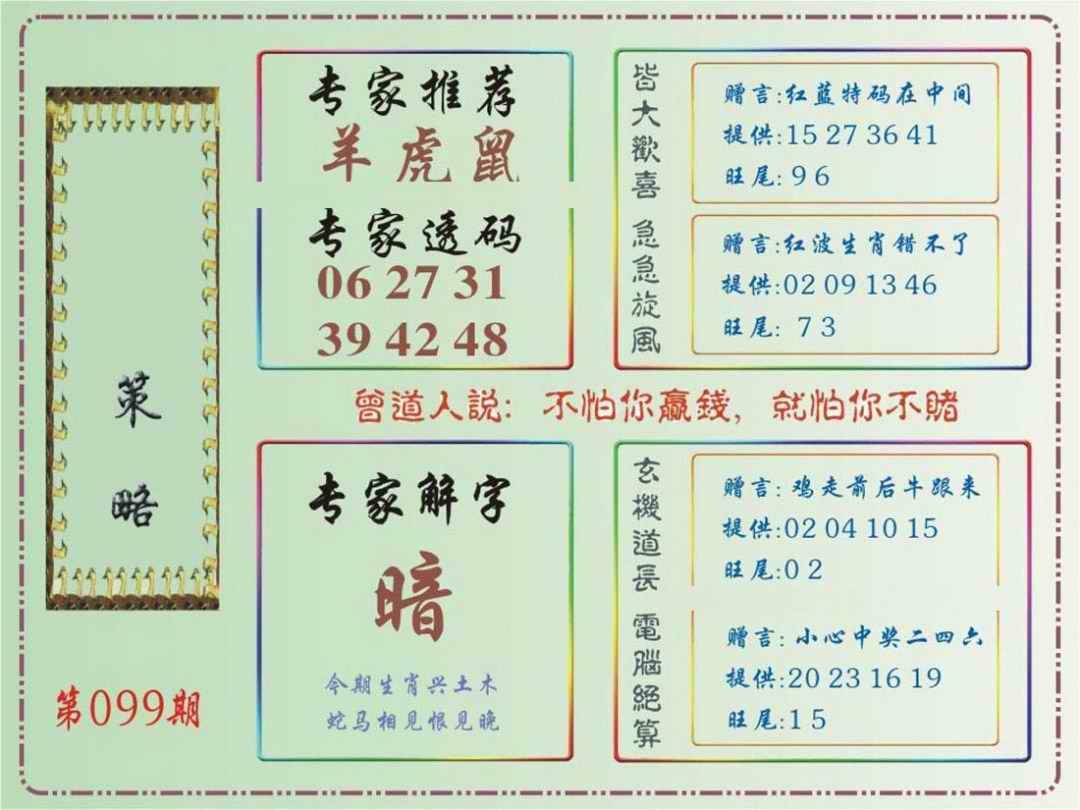 策
略
第099期
专家推荐
羊虎鼠
专家透码
06 27 31
39 42 48
皆大歡喜
赠言:红蓝特码在中间
提供:15 27 36 41
旺尾:9 6
急急旋風
赠言:红波生肖错不了
提供:02 09 13 46
旺尾: 7 3
曾道人説: 不怕你贏錢, 就怕你不賭
专家解字
暗
今期生肖兴土木
蛇马相见恨见晚
玄機道長
赠言: 鸡走前后牛跟来
提供:02 04 10 15
旺尾:0 2
電腦絕算
赠言: 小心中奖二四六
提供:20 23 16 19
旺尾:1 5